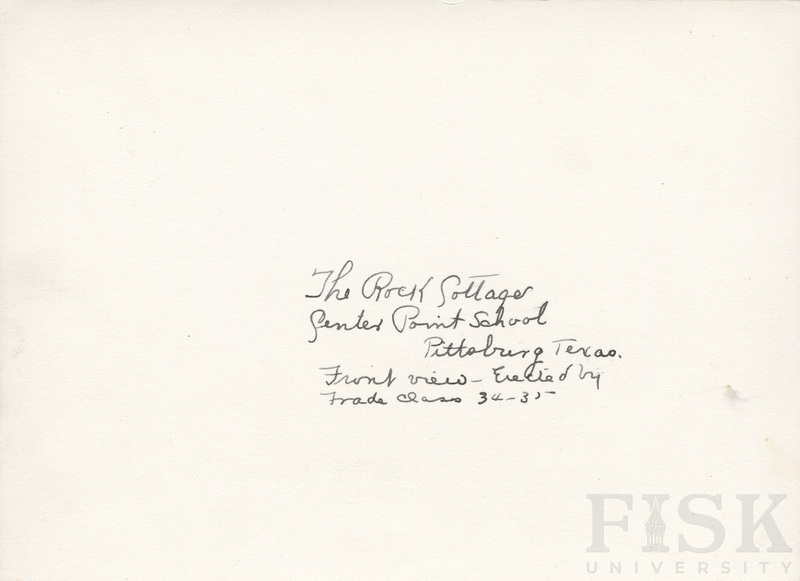 The Rock Cottage
Center Point School
Pittsburg Texas.
Front view - Erected by
Trade Class 34-35
FISK
UNIVERSITY